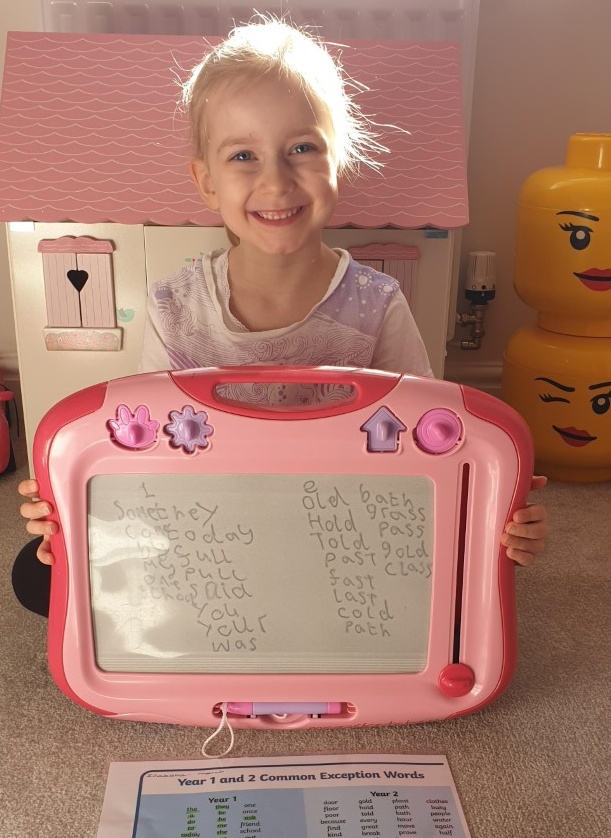 1
Some they
come today
he full
me pull
one's aid
school
you
your
was
2
Old bath
Hold grass
Told Pass
Past gold
fast class
Last
cold
Path
Year 1 and 2 Common Exception Words
Year 1
the they one
a be once
do he ask
to me friend
today she school
Year 2
door gold plant clothes
floor hold path busy
poor told bath people
because every hour water
find great move again
kind break prove half